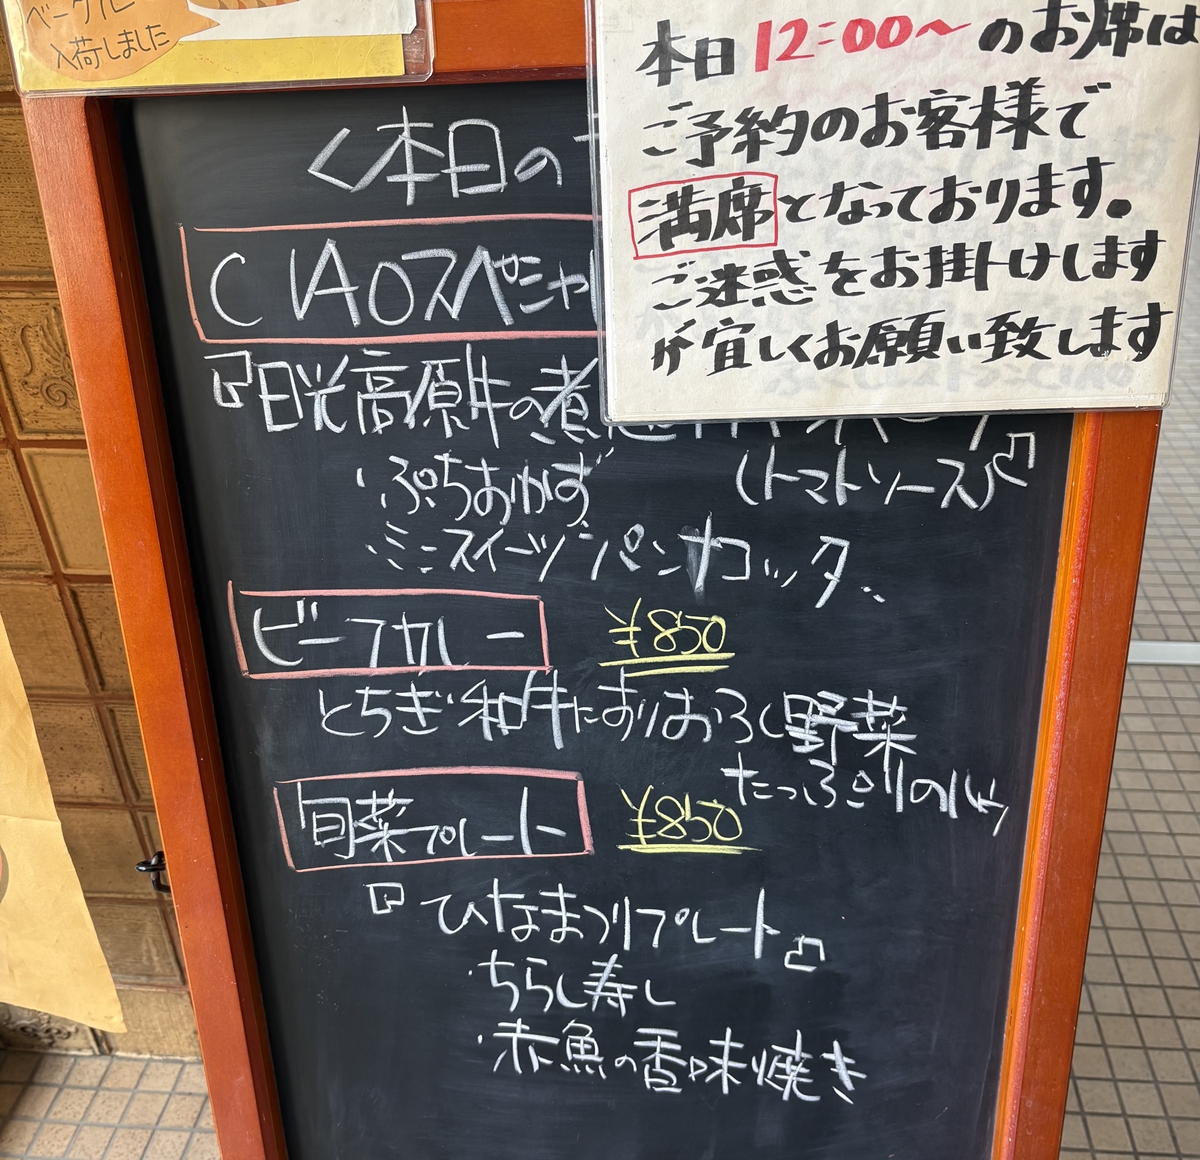 ベーグル
入荷しました
本日12:00〜のお席は
ご予約のお客様で
満席となっております。
ご迷惑をお掛けします
が宜しくお願い致します
<本日の
CIAOスペシャル
『日光高原牛の煮込
(トマトソース)』
・ぷちおかず
・ミニスイーツ パンナコッタ..
ビーフカレー ¥850
とちぎ和牛にすりおろし野菜
たっぷりのルゥ
旬菜プレート ¥850
『ひなまつりプレート』
・ちらし寿し
・赤魚の香味焼き